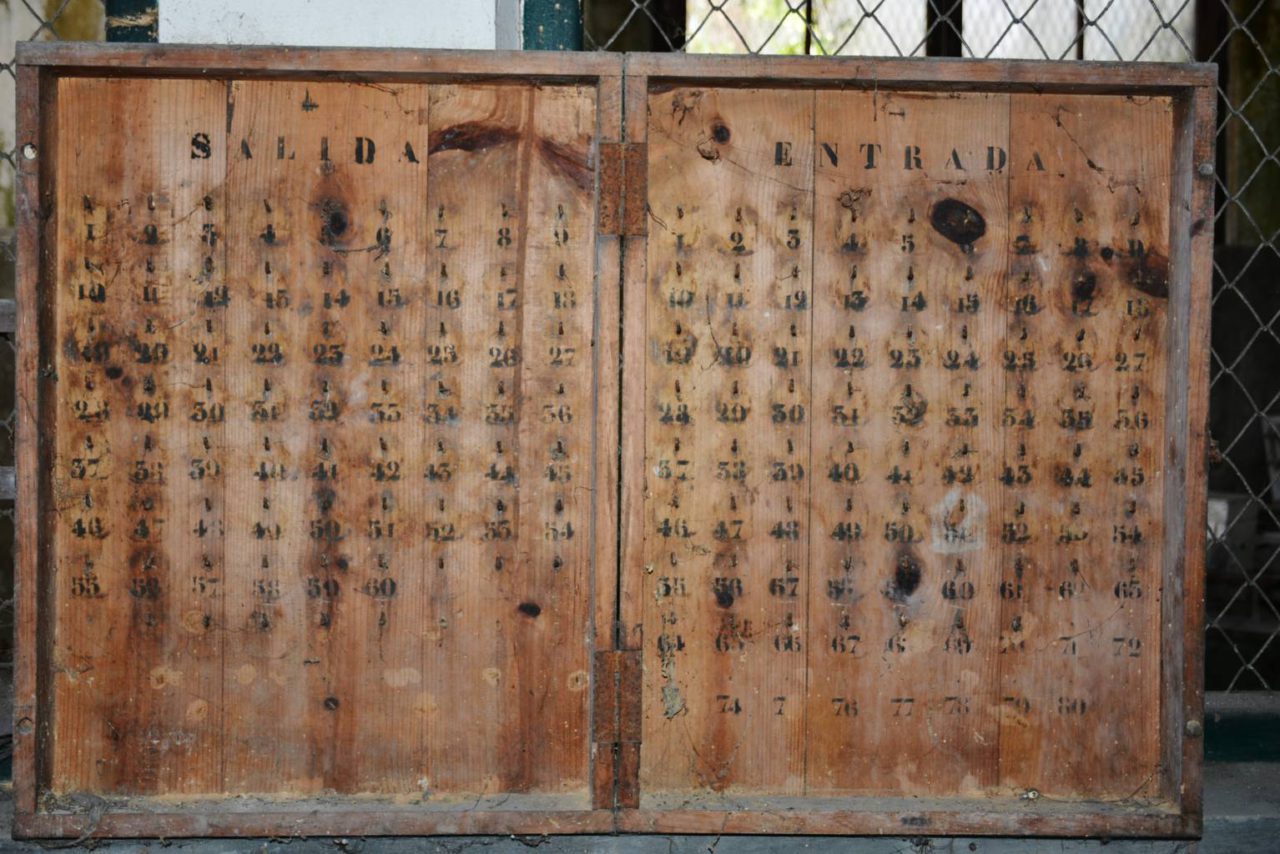 SALIDA
1 2 3 4 5 6 7 8 9
10 11 12 13 14 15 16 17 18
19 20 21 22 23 24 25 26 27
28 29 30 31 32 33 34 35 36
37 38 39 40 41 42 43 44 45
46 47 48 49 50 51 52 53 54
55 56 57 58 59 60
ENTRADA
1 2 3 4 5 7 8 9
10 11 12 13 14 15 16 17 18
19 20 21 22 23 24 25 26 27
28 29 30 31 32 33 34 35 36
37 38 39 40 41 42 43 44 45
46 47 48 49 50 51 52 53 54
55 56 57 58 59 60 61 62 63
64 65 66 67 6 69 70 71 72
74 7 76 77 78 79 80